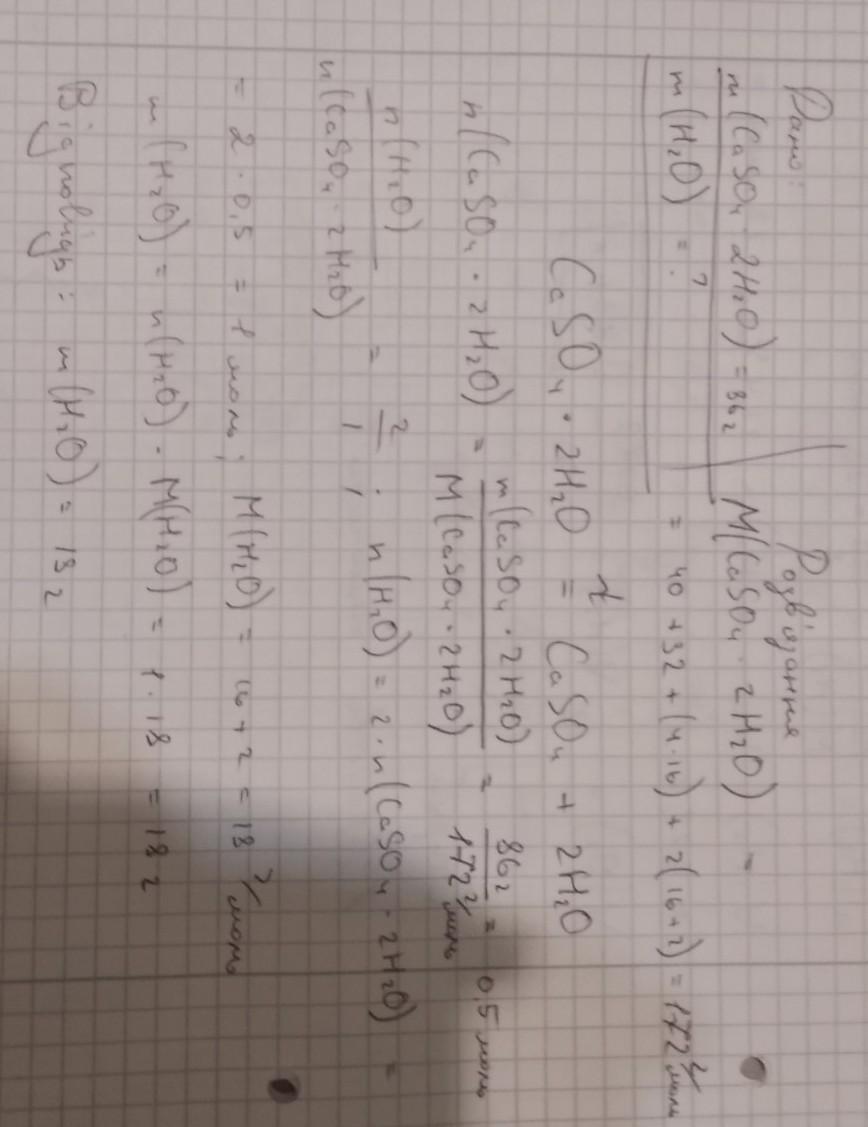 Дано:
m(CaSO₄ · 2H₂O) = 86 г
m(H₂O) = ?
Розв'язання
M(CaSO₄ · 2H₂O) =
= 40 + 32 + (4·16) + 2(16+2) = 172 г/моль
CaSO₄ · 2H₂O =ᵗ CaSO₄ + 2H₂O
n(CaSO₄ · 2H₂O) = m(CaSO₄ · 2H₂O) / M(CaSO₄ · 2H₂O) = 86 г / 172 г/моль = 0,5 моль
n(H₂O) / n(CaSO₄ · 2H₂O) = 2/1; n(H₂O) = 2 · n(CaSO₄ · 2H₂O) =
= 2 · 0,5 = 1 моль; M(H₂O) = 16 + 2 = 18 г/моль
m(H₂O) = n(H₂O) · M(H₂O) = 1 · 18 = 18 г
Відповідь: m(H₂O) = 18 г